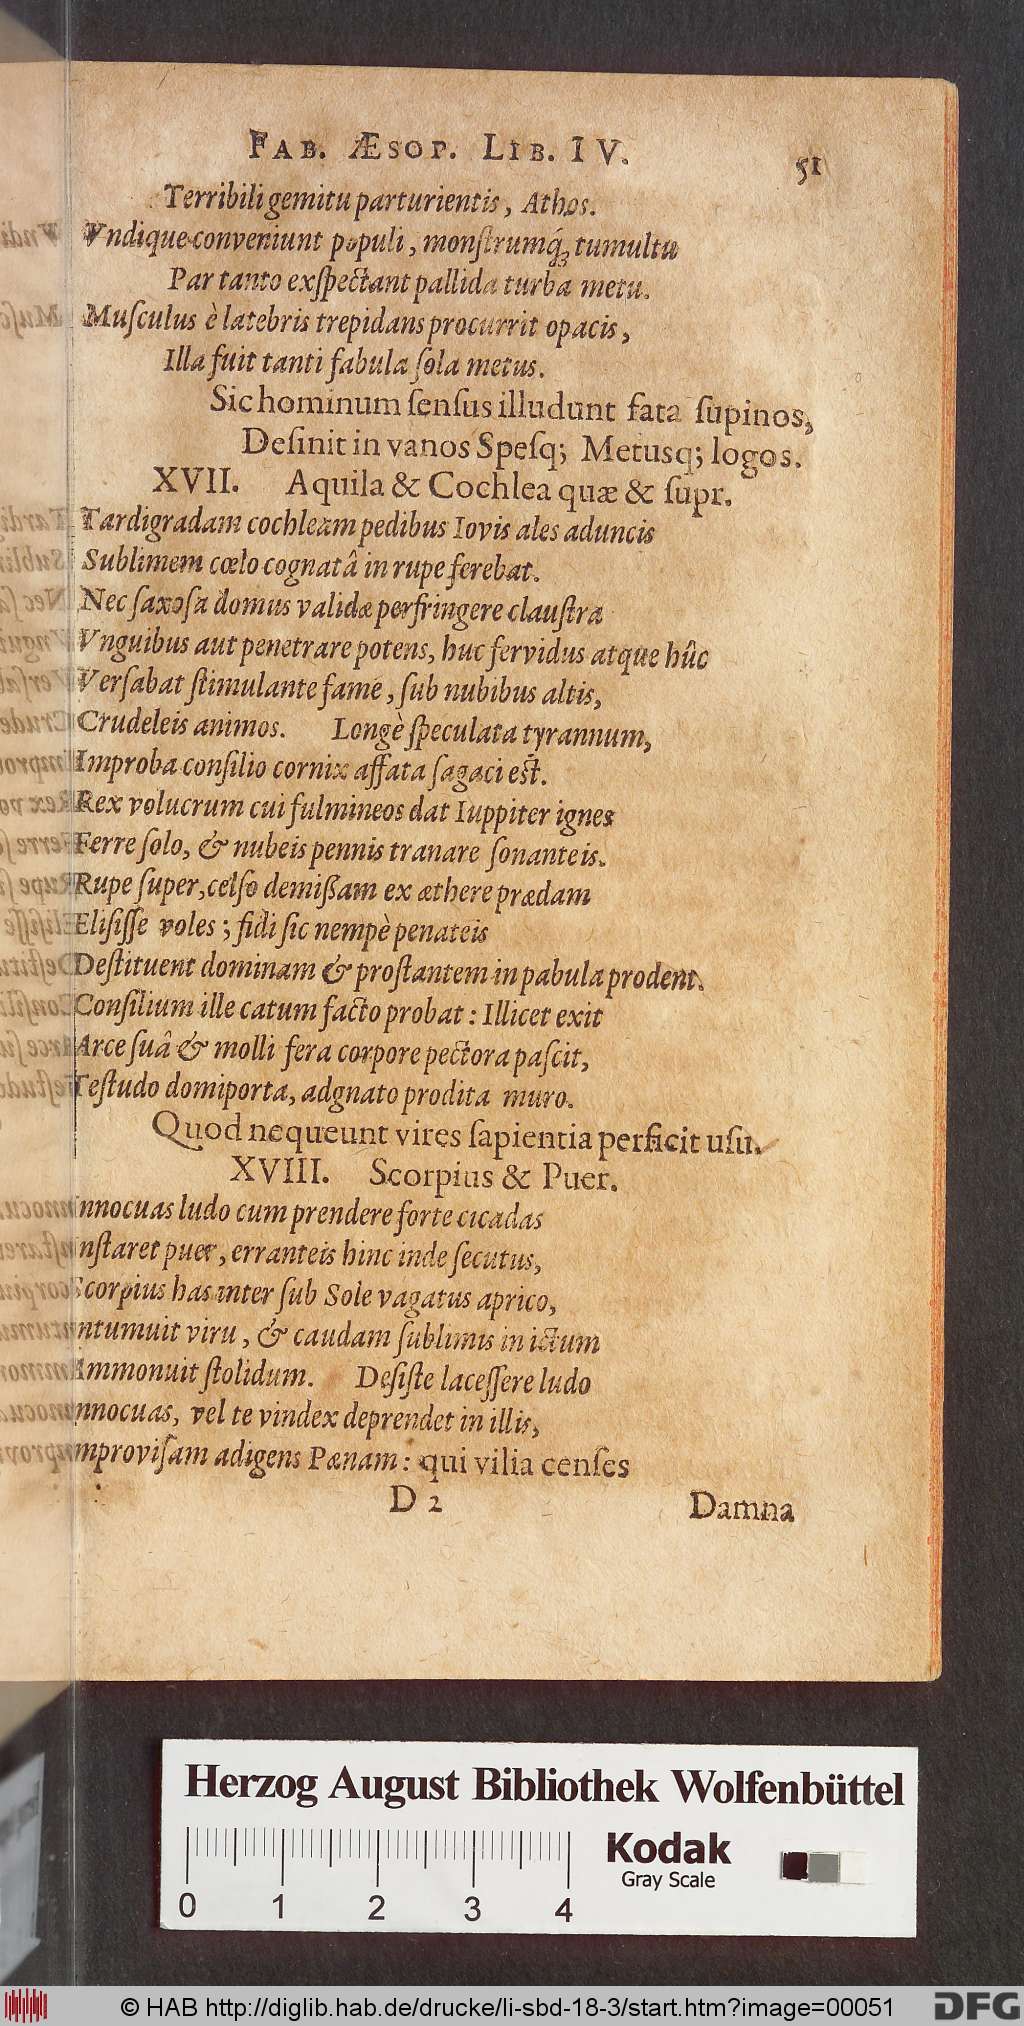 FAB. ÆSOP. LIB. IV. 51
Terribili gemitu parturientis, Athos.
Vndique conveniunt populi, monſtrumq́; tumultu
Par tanto exſpectant pallida turba metu.
Muſculus è latebris trepidans procurrit opacis,
Illa fuit tanti fabula ſola metus.
Sic hominum ſenſus illudunt fata ſupinos,
Deſinit in vanos Speſq; Metusq; logos.
XVII. Aquila & Cochlea quæ & ſupr.
Tardigradam cochleam pedibus Iovis ales aduncis
Sublimem cœlo cognatâ in rupe ferebat.
Nec ſaxoſa domus validæ perfringere clauſtra
Vnguibus aut penetrare potens, huc fervidus atque hûc
Verſabat ſtimulante fame, ſub nubibus altis,
Crudeleis animos. Longè ſpeculata tyrannum,
Improba conſilio cornix affata ſagaci eſt.
Rex volucrum cui fulmineos dat Iuppiter ignes
Ferre ſolo, & nubeis pennis tranare ſonanteis.
Rupe ſuper, celſo demiſsam ex æthere prædam
Eliſiſſe voles; fidi ſic nempè penateis
Deſtituent dominam & proſtantem in pabula prodent.
Conſilium ille catum facto probat: Illicet exit
Arce ſuâ & molli fera corpore pectora paſcit,
Teſtudo domiporta, adgnato prodita muro.
Quod nequeunt vires ſapientia perficit uſu.
XVIII. Scorpius & Puer.
Innocuas ludo cum prendere forte cicadas
Inſtaret puer, erranteis hinc inde ſecutus,
Scorpius has inter ſub Sole vagatus aprico,
Intumuit viru, & caudam ſublimis in ictum
Ammonuit ſtolidum. Deſiſte laceſſere ludo
Innocuas, vel te vindex deprendet in illis,
Improviſam adigens Pænam: qui vilia cenſes
D 2 Damna
Herzog August Bibliothek Wolfenbüttel
Kodak
Gray Scale
0 1 2 3 4
© HAB http://diglib.hab.de/drucke/li-sbd-18-3/start.htm?image=00051
DFG